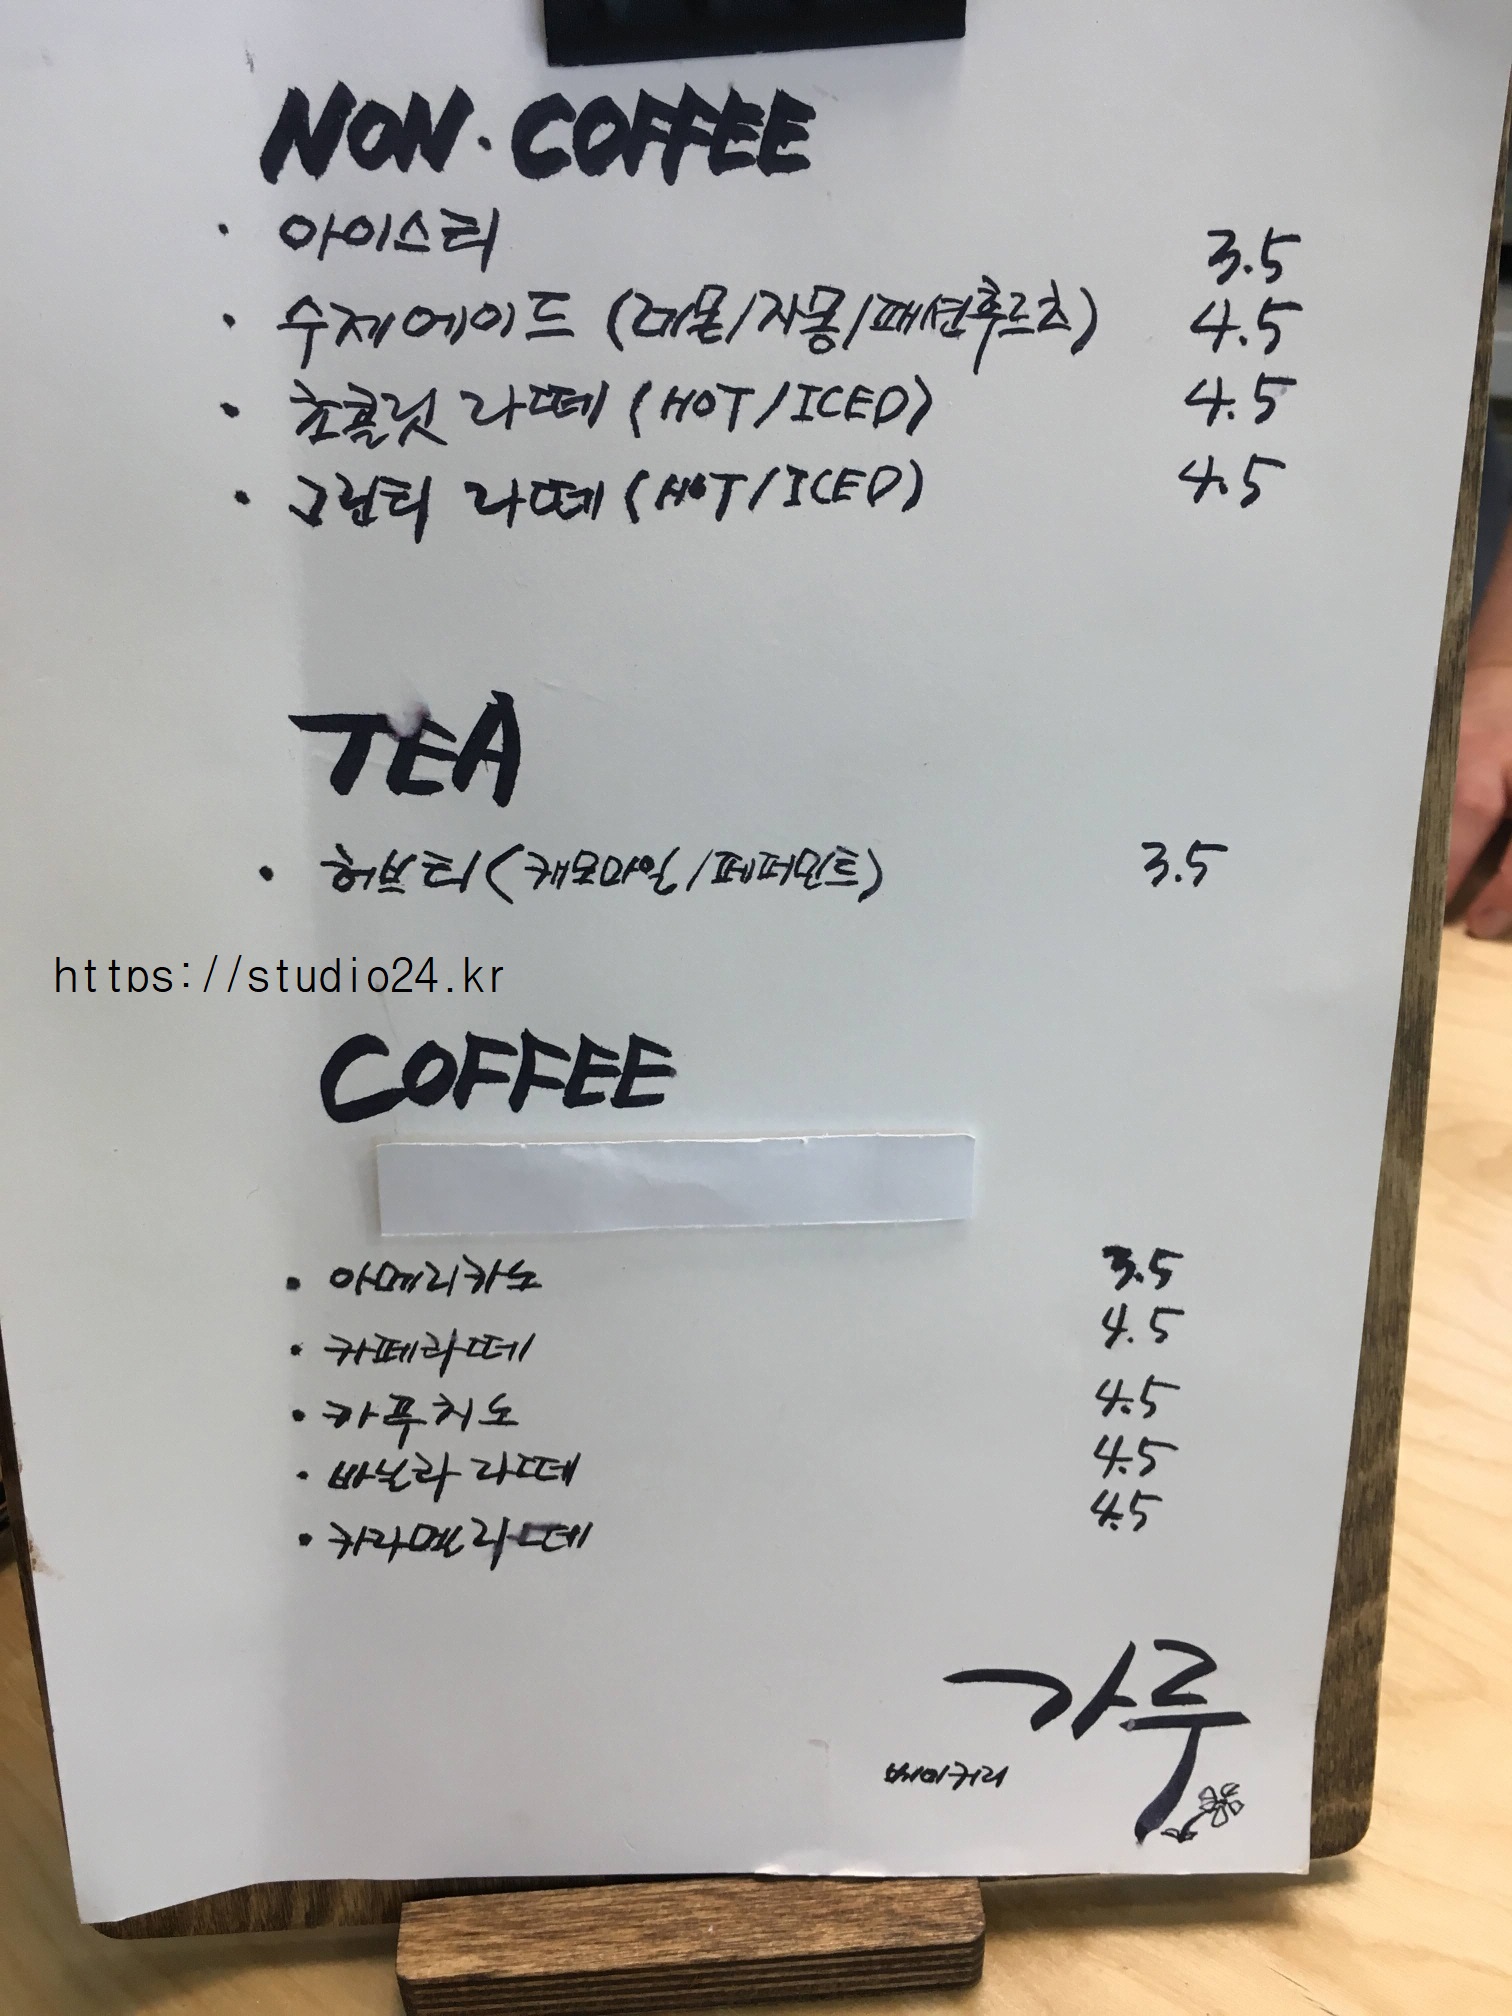 NON·COFFEE
· 아이스티 3.5
· 수제에이드 (레몬/자몽/패션후르츠) 4.5
· 쵸콜릿 라떼 (HOT/ICED) 4.5
· 그린티 라떼 (HOT/ICED) 4.5
TEA
· 허브티 (캐모마일/페퍼민트) 3.5
https://studio24.kr
COFFEE
· 아메리카노 3.5
· 카페라떼 4.5
· 카푸치노 4.5
· 바닐라 라떼 4.5
· 카라멜라떼 4.5
가루
베이커리